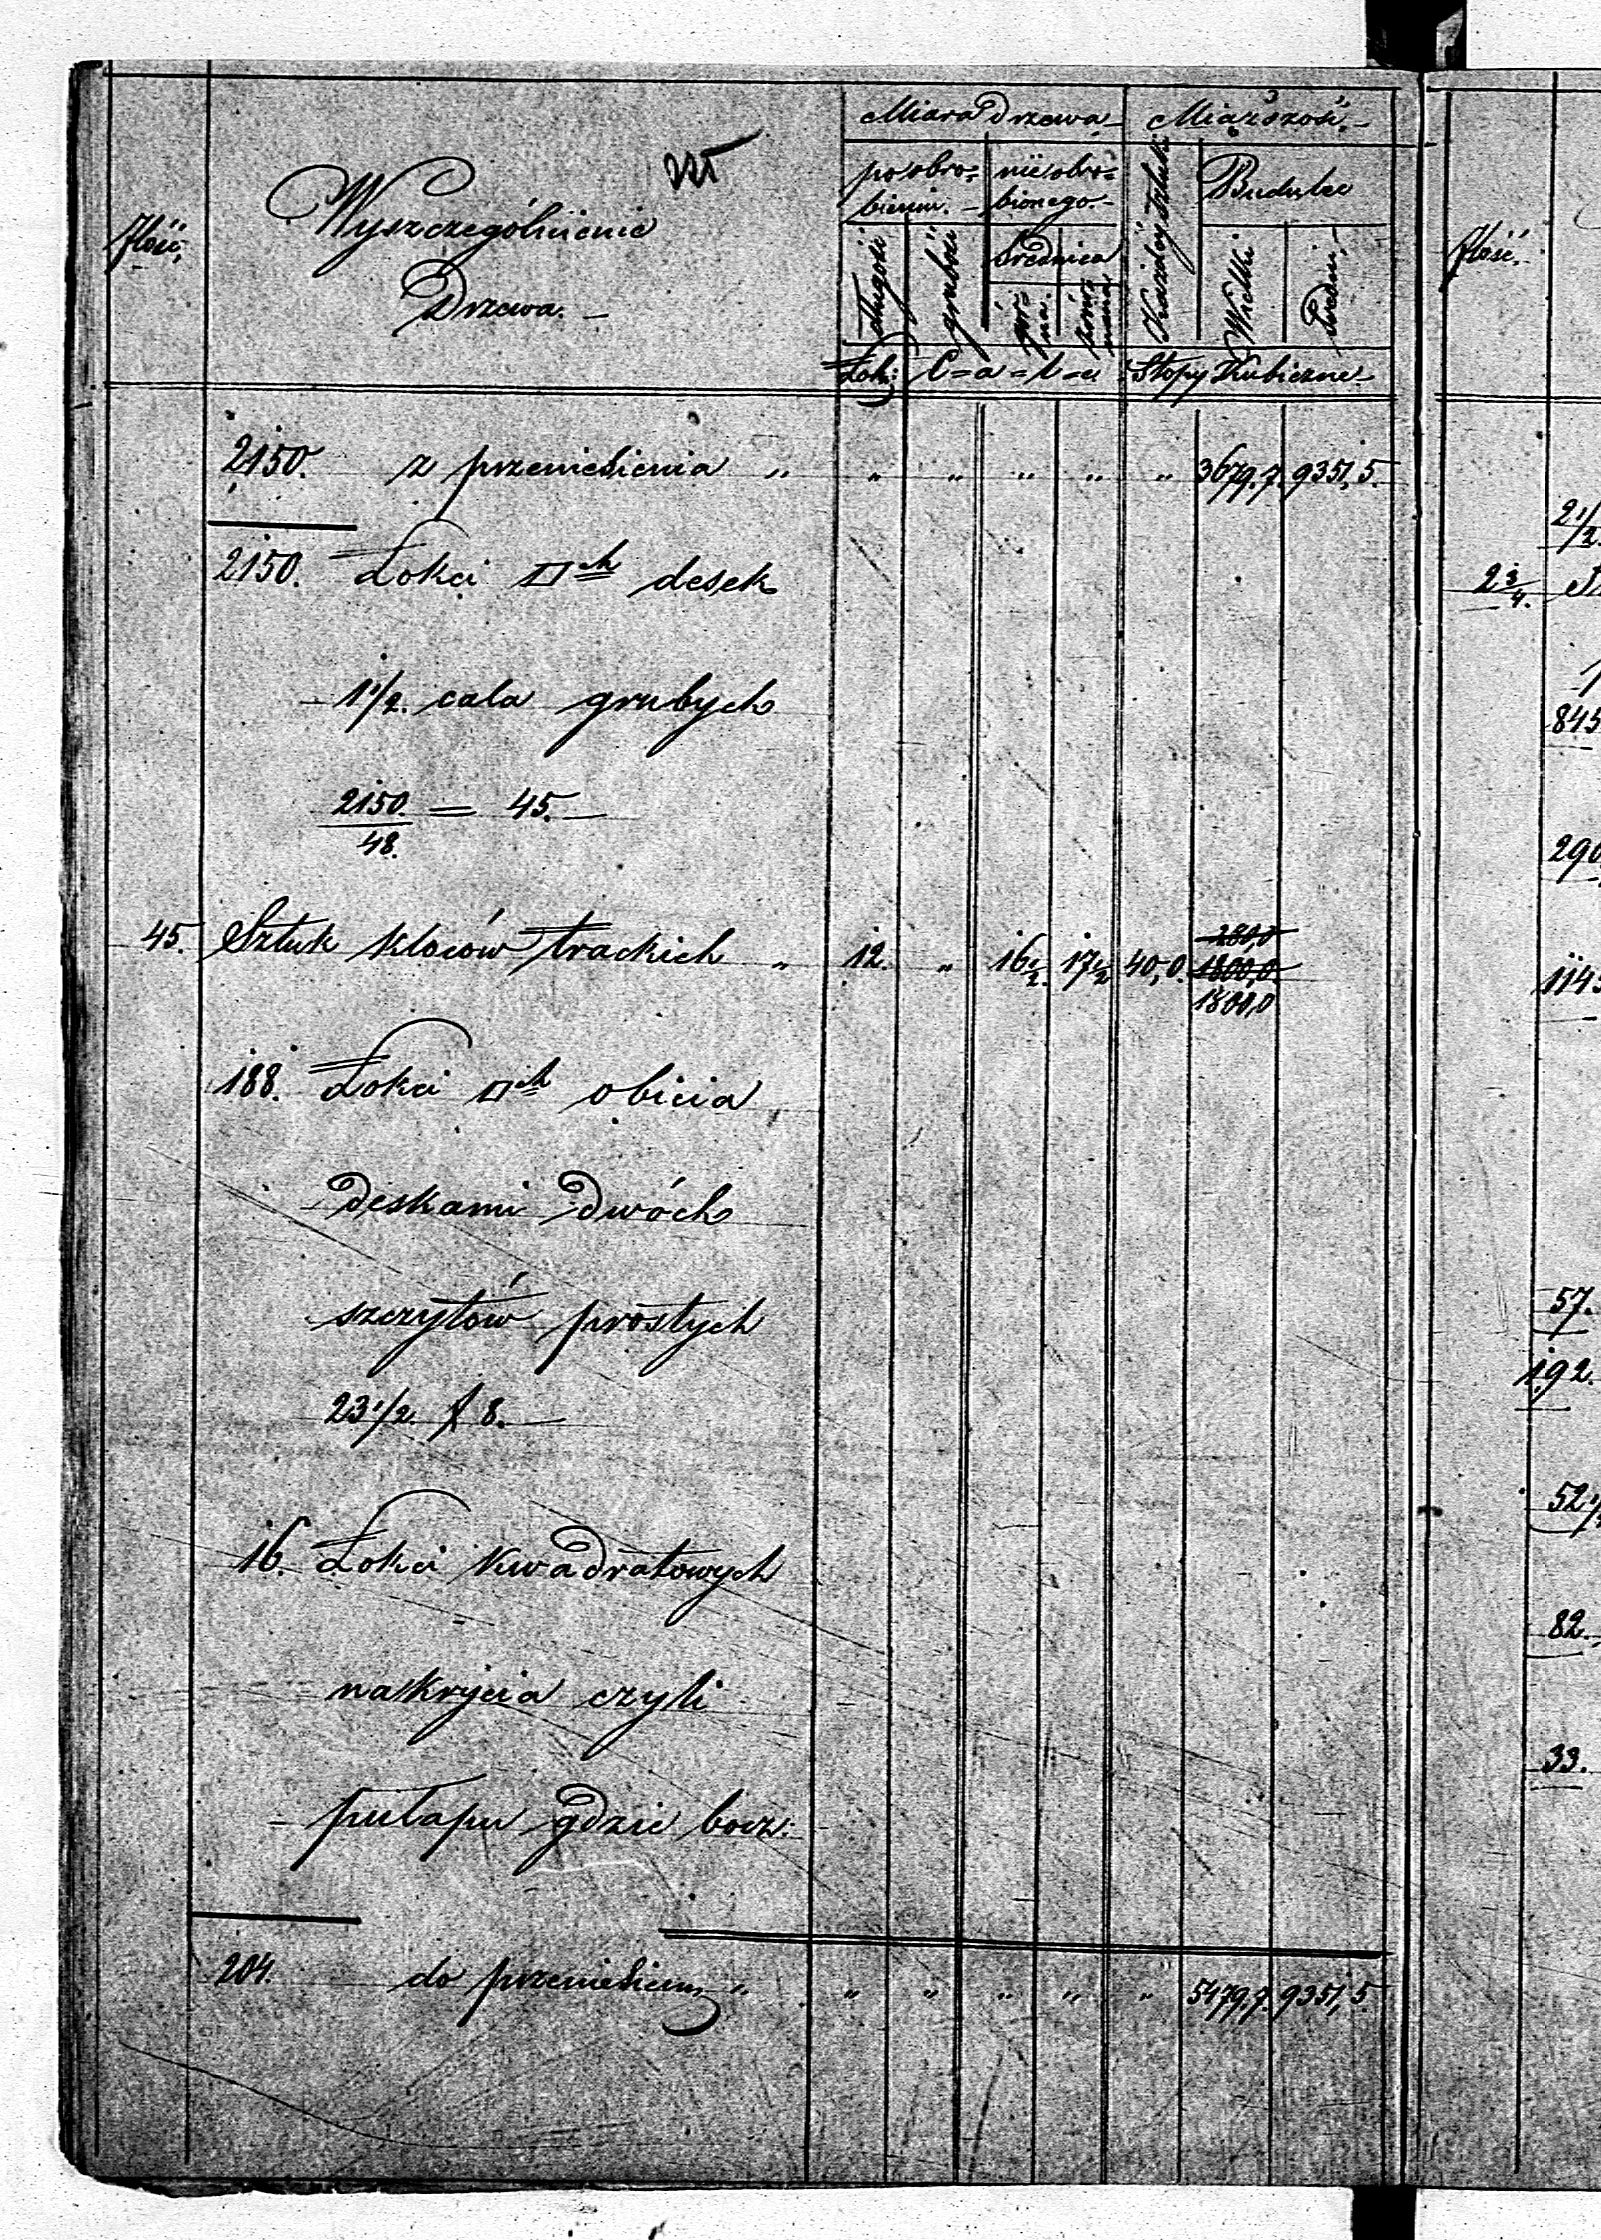 225
Miara Drzewa Miąższość
Ilość Wyszczególnienie Drzewa. po obro= bieniu. nieobro= bionego. Każdej sztuki Budulec
długość grubość Średnica gór= na. Wielki Średni
Łok: C=a=l=e Stopy Kubiczne
2150. z przeniesienia " " " " " " 3679,7. 9351,5.
2150. Łokci □ch desek
1 1/2. cala grubych
2150/48. = 45.
280,0
45. Sztuk kloców trackich " 12. " 16 1/2. 17 1/2 40,0. 1800,0.
1800,0
188. Łokci □ch obicia
deskami dwóch
szczytów prostych
23 1/2. × 8.
16. Łokci kwadratowych
nakrycia czyli
pułapu gdzie bocz:
204. do przeniesienia " " " " " " 5479,7. 9351,5.
Ilość.
2 1/2
2 3/4.
845
290
1143
57.
192.
52 1/
82.
33.